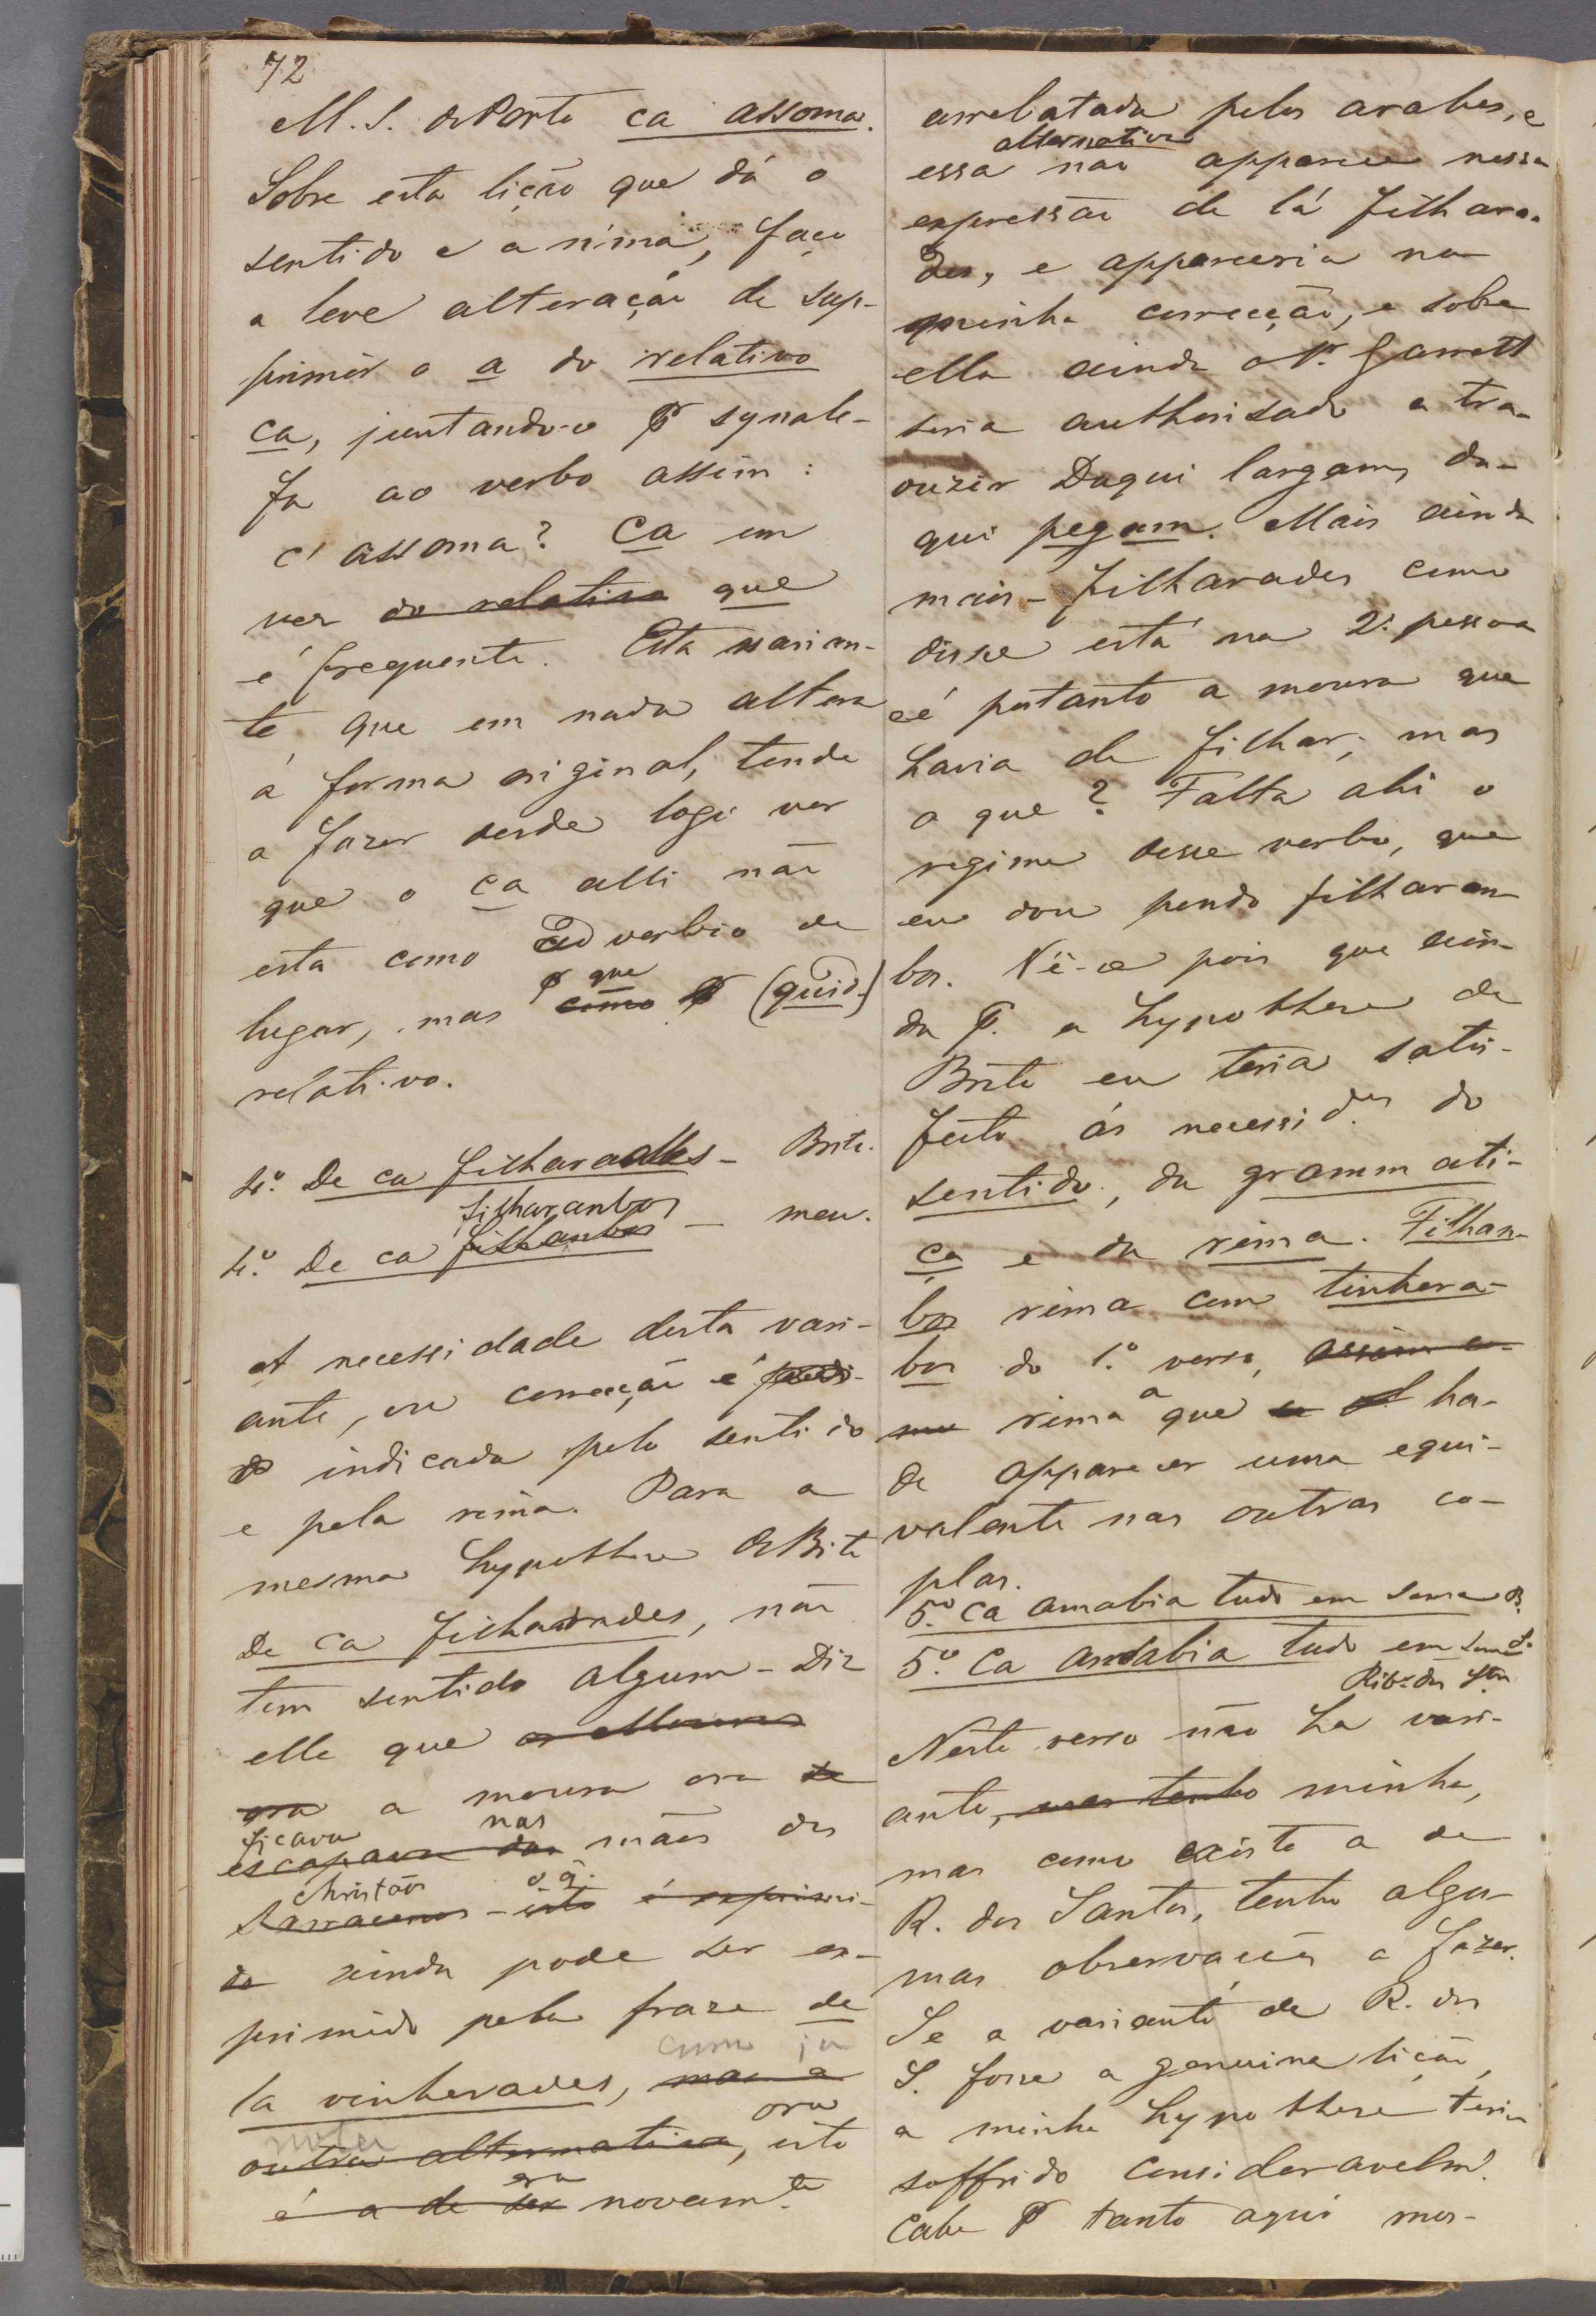 72
M. S. do Porto ca assoma.
Sobre esta lição que dá o
sentido e a rima, faço
a leve alteração de sup-
primir o a do relativo
ca, juntando-o pr synale-
fa ao verbo assim:
c' assoma? Ca em
vez do relativo que
é frequente. Esta varian-
te que em nada altera
a forma original, tende
a fazer desde logo ver
que o ca alli não
esta como adverbio de
pr que
lugar, mas como pr (quid)
relativo.
4.º De ca filharades - Brito.
filharanbos
4.º De ca filhanbos - meu.
A necessidade desta vari-
ante, ou correcção é
indicada pelo sentido
e pela rima. Para a
mesma hypothese de Brito
De ca filharades, não
tem sentido algum - Diz
elle que os Mouros
ora a moura ora se
ficava nas
escapava das mãos dos
Christãos o q.
Sarracenos - isto é exprimi-
do ainda pode ser ex-
primido pela fraze de
como já
la vinherades, mas a
notei ora
outra alternativa, isto
era
é a de ser novamte
arrebatada pelos arabes, e
alternativa
essa não apparece nessa
expressão de lá filhara-
des, e appareceria na
minha correcção, e sobre
ella ainda o Sr. Garrett
seria authorisado a tra-
duzir Daqui largam, da-
qui pegam. Mais ainda
mais - filharades como
disse está na 2.ª pessoa
e é portanto a moura que
havia de filhar; mas
o que? Falta ahi o
regime desse verbo, que
eu dou pondo filharan-
bos. Vê-se pois que ain-
da pr. a hypothese de
Brito eu teria satis-
feito ás necessides do
sentido, da grammati-
ca e da rima. Filhan-
bos rima com tinhera-
bos do 1.º verso, assim co-
mo rima a que se ha-
de apparecer uma equi-
valente nas outras co-
plas.
5.º Ca amabia tudo em soma B.
5.º Ca andabia tudo em soma
Ribº dos Stos
Neste verso não ha vari-
ante, mas tenho minha,
mas como existe a de
R. dos Santos, tenho algu-
mas observações a fazer.
Se a variante de R. dos
S. fosse a genuina lição,
a minha hypothese teria
soffrido consideravelmte.
Cabe pr tanto aqui mos-